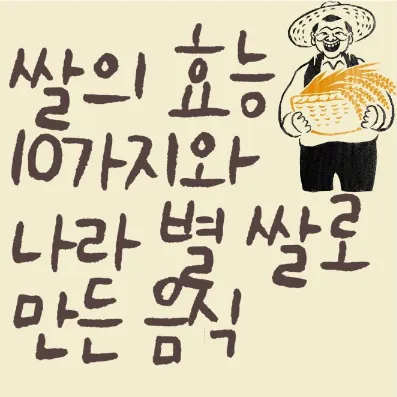 쌀의 효능
10가지와
나라 별 쌀로
만든 음식